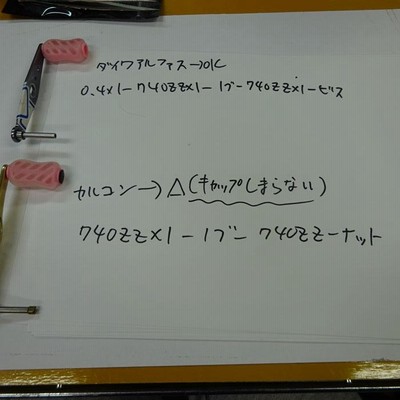 ダイワアルファス→OK
0.4×1-740ZZ×1-1ブ-740ZZ×1-ビス
カルコン→△(キャップしまらない)
740ZZ×1-1ブ-740ZZ-ナット